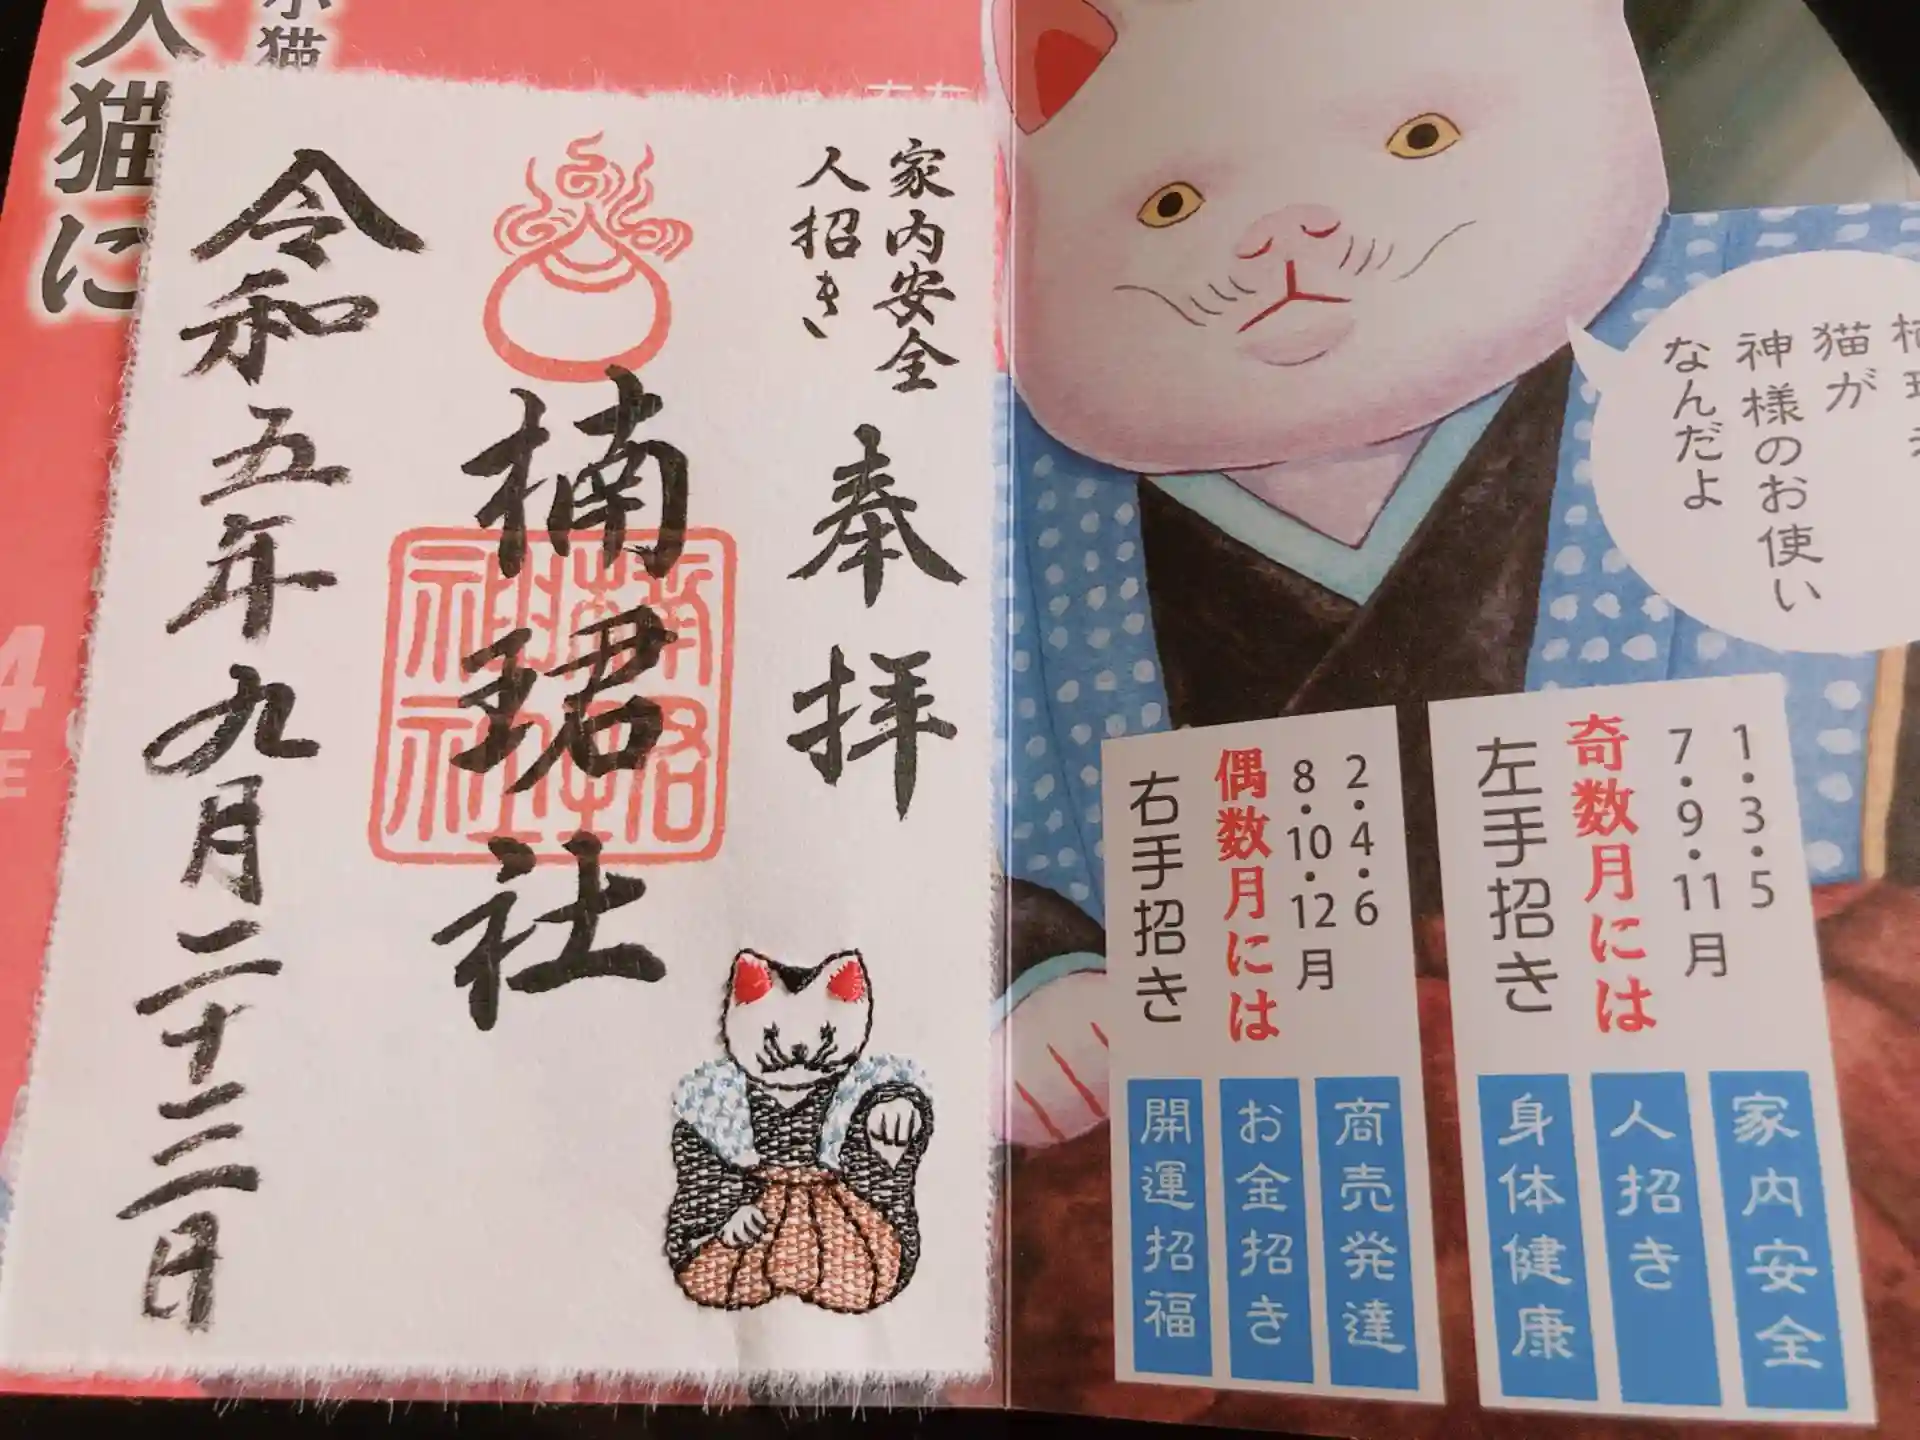 家内安全
人招き
奉拝
楠珺社
令和五年九月二十三日
猫に
猫
猫が
神様のお使い
なんだよ
1・3・5
7・9・11月
奇数月には
左手招き
家内安全
人招き
身体健康
2・4・6
8・10・12月
偶数月には
右手招き
商売発達
お金招き
開運招福